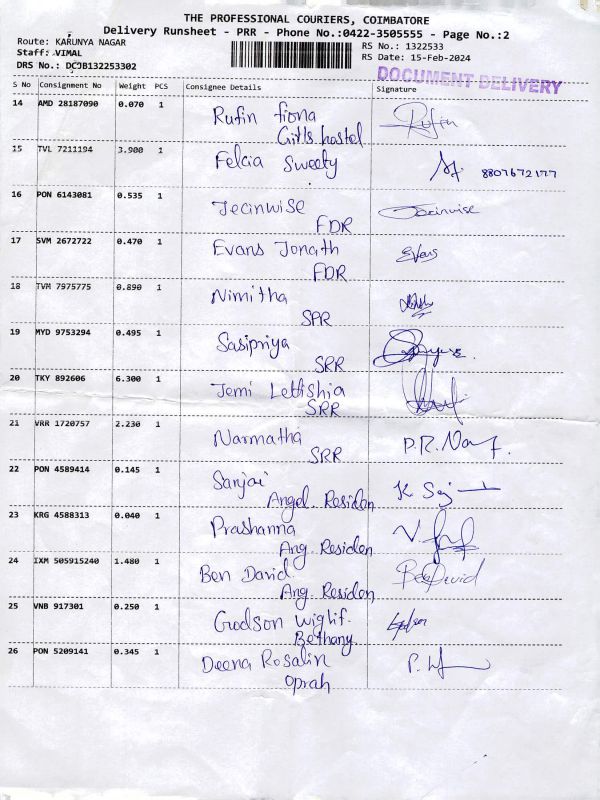 THE PROFESSIONAL COURIERS, COIMBATORE
Delivery Runsheet - PRR - Phone No.:0422-3505555 - Page No.:2
Route: KARUNYA NAGAR
Staff: VIMAL
DRS No.: DCJB132253302
RS No.: 1322533
RS Date: 15-Feb-2024
DOCUMENT DELIVERY
S No Consignment No Weight PCS Consignee Details Signature
14 AMD 28187090 0.070 1 Rufin fiona Rufin
Girls hostel
15 TVL 7211194 3.900 1 Felcia Sweety 8807672177
16 PON 6143081 0.535 1 Jecinwise Jecinwise
FDR
17 SVM 2672722 0.470 1 Evans Jonath Evans
FDR
18 TVM 7975775 0.890 1 Nimitha
SPR
19 MYD 9753294 0.495 1 Sasipriya
SRR
20 TKY 892606 6.300 1 Jemi Lettishia
SRR
21 VRR 1720757 2.230 1 Narmatha P.R.
SRR
22 PON 4589414 0.145 1 Sanjai K
Angel. Residen
23 KRG 4588313 0.040 1 Prashanna V.
Ang. Residen
24 IXM 505915240 1.480 1 Ben David Ben David
Ang. Residen
25 VNB 917301 0.250 1 Godson Wiglif.
Bethany
26 PON 5209141 0.345 1 Deena Rosalin P.
Oprah